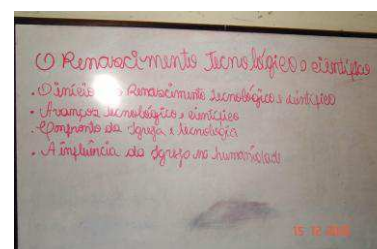 O Renascimento Tecnológico e científico
. O início do Renascimento tecnológico e científico
. Avanços tecnológico e científico
. Confronto da Igreja e tecnologia
. A influência da Igreja na humanidade
15 12